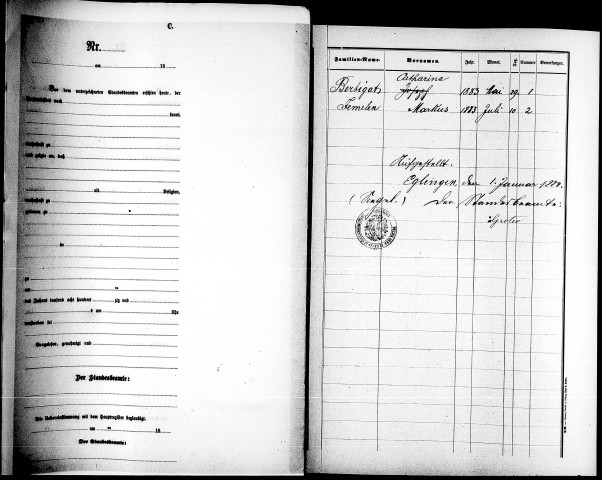 C.
Nr.
am 18
Vor dem unterzeichneten Standesbeamten erschien heute, der
Persönlichkeit nach
kannt,
wohnhaft zu
und zeigte an, daß
alt Religion,
wohnhaft zu
geboren zu
zu
am
des Jahres tausend acht hundert zig und
um Uhr
verstorben sei
Vorgelesen, genehmigt und
Der Standesbeamte:
Die Uebereinstimmung mit dem Hauptregister beglaubigt.
am 18
Der Standesbeamte:
Familien-Name. Vornamen. Jahr. Monat. Tag. Nummer. Bemerkungen.
Catharina
Bertigat Joseph 1883 Mai 29. 1
Femelen Markus 1883 Juli 10 2
Aufgestellt.
Eglingen, den 1. Januar
(Siegel.) Der Standesbeamte: